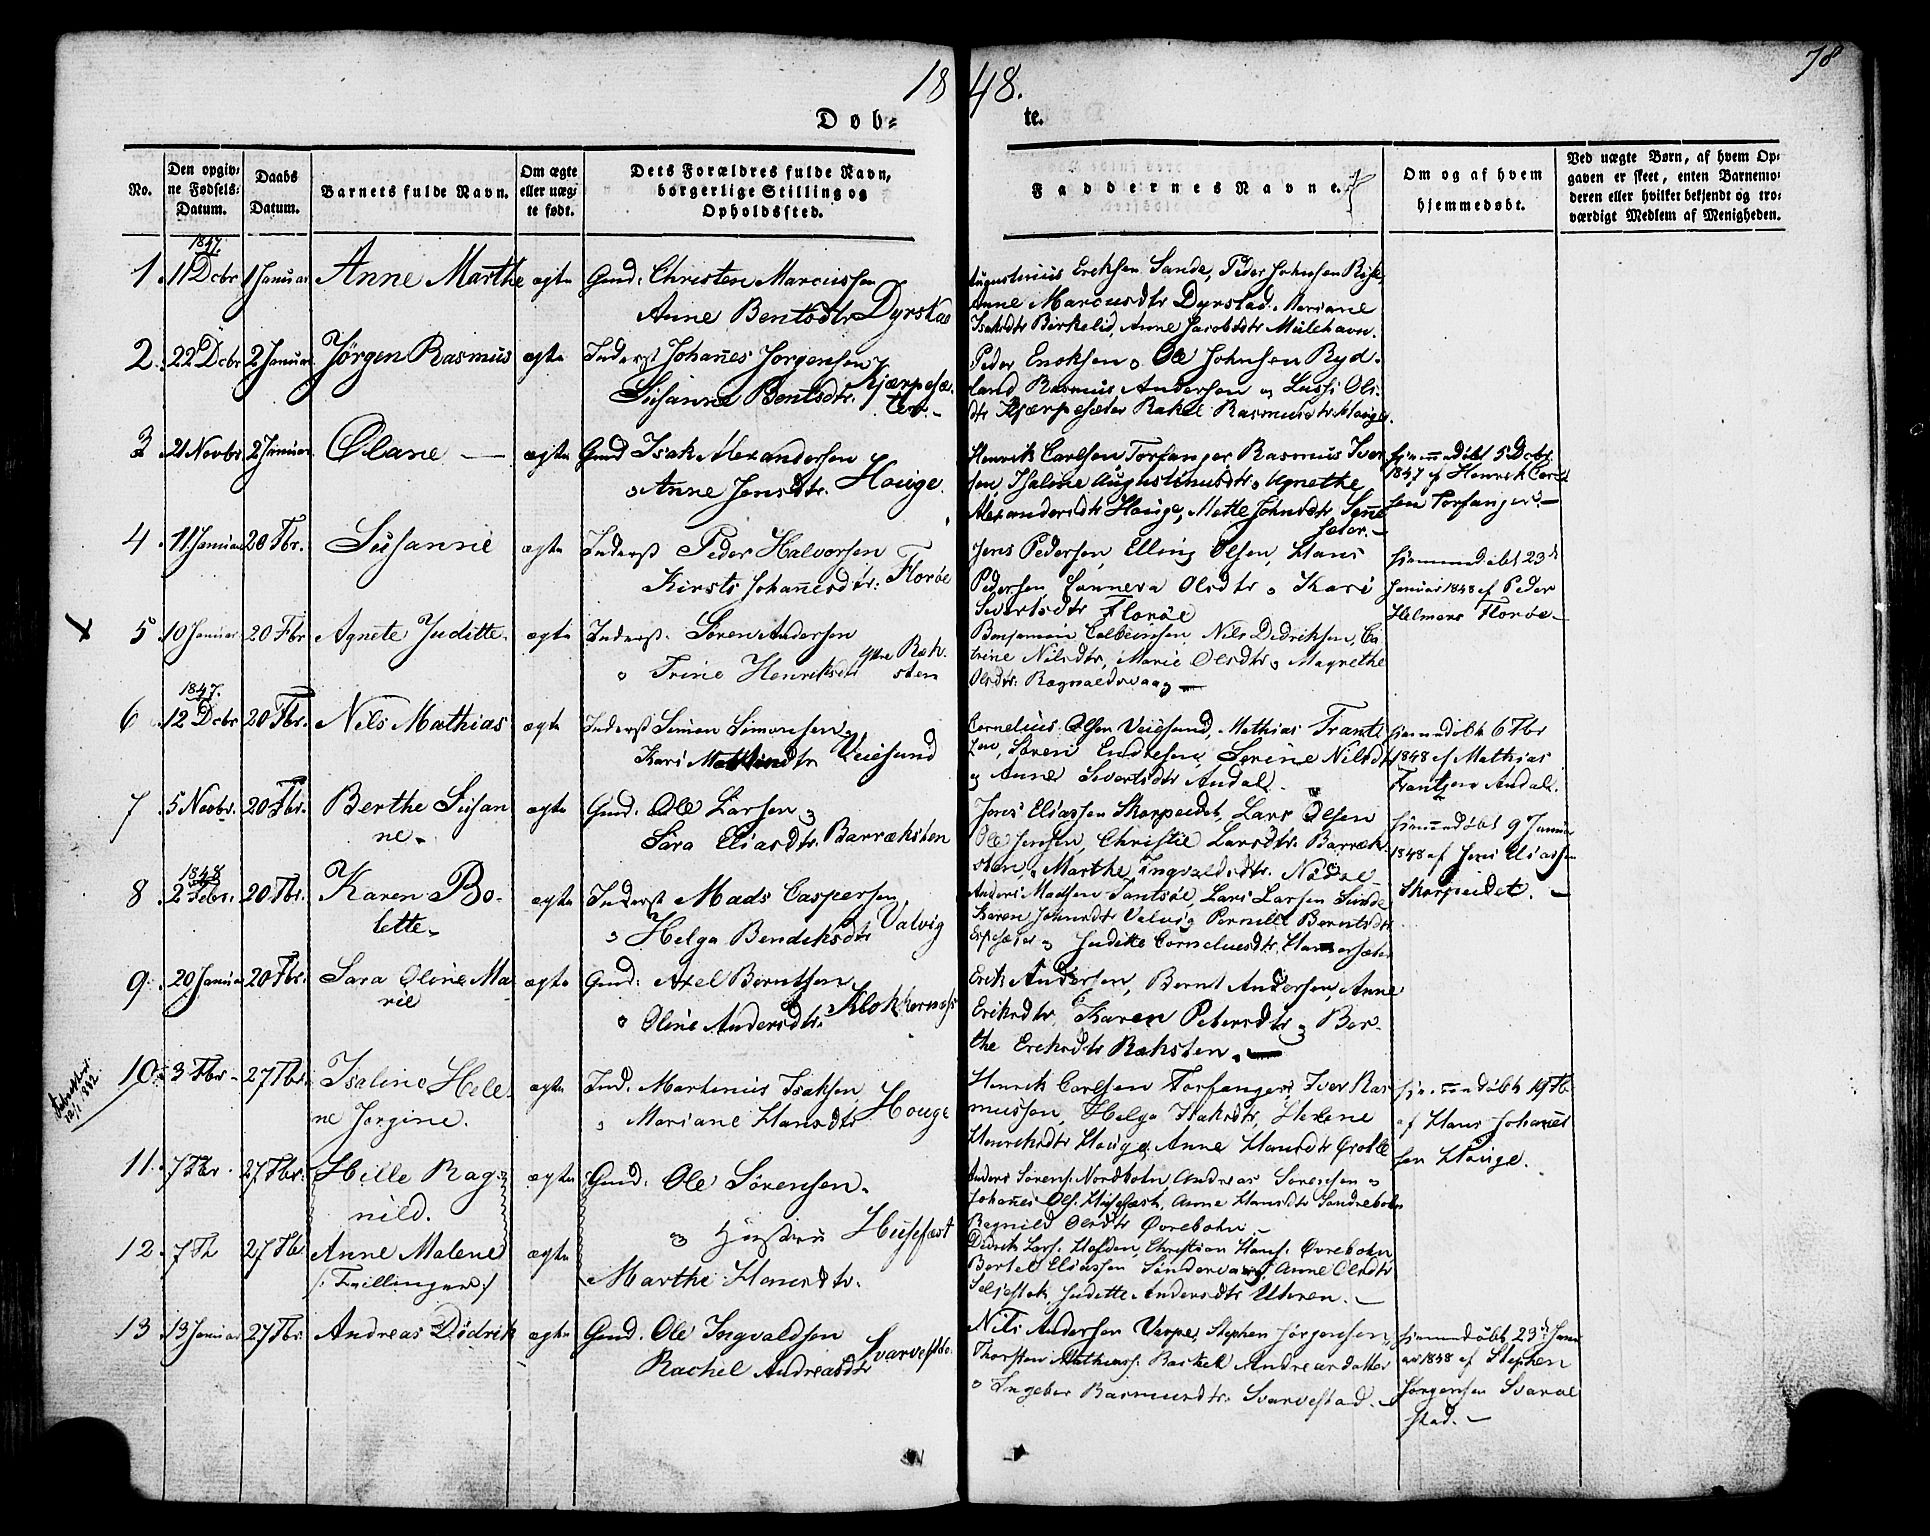 1848.
78
Døb-
te.
No.
Den opgiv-
ne Fødsels-
Datum.
Daabs
Datum.
Barnets fulde Navn.
Om ægte
eller uæg-
te født.
Dets Forældres fulde Navn,
borgerlige Stilling og
Opholdssted.
Faddernes Navne.
Om og af hvem
hjemmedøbt.
Ved uægte Børn, af hvem Op-
gaven er skeet, enten Barnemo-
deren eller hvilket bekjendt og tro-
værdigt Medlem af Menigheden.
1847.
1. 11 Dcbr 1 Januar Anne Marthe ægte Gmd: Christen Marcussen
Anne Bentsdtr Dyrstad
Augustinus Ericksen Sande, Peder Johnsen
Anne Marcusdtr Dyrstad, Mariane
Isaksdtr Birkelid, Anne Jacobsdtr Mülehavn.
2. 22 Dcbr 2 Januar Jørgen Rasmus ægte Inderst Johanes Jørgensen
Susanne Bentsdtr. Kjærpesæ-
ter.-
Peder Enoksen, Ole Johnsen Ryd-
land Rasmus Andersen og Ols-
dtr Kjærpesæter Rakel Rasmusdtr Houge.
3 21 Novbr 2 Januar Olane — ægte Gmd Isak Alexandersen
Anne Jensdtr. Houge.
Henrik Carlsen Torfanger Rasmus Iver
sen, Thaline Augustinusdtr, Agnethe
Alexandersdtr Houge, Mette Johnsdtr
sæter.-
hjemmedøbt 5 Dcbr
1847 af Henrik Carl
sen Torfanger.-
4 11 Januar 20 Fbr. Susanne ægte Inderst Peder Halvorsen
Kirsti Johanesdtr: Florøe
Jens Pedersen, Elling Olsen, Hans
Pedersen, Olsdtr og Kari
Sivertsdtr Florøe
hjemmedøbt 23d
Januar 1848 af Peder
Helmers Florøe-
5 10 Januar 20 Fbr Agnete Juditte. ægte Inderst. Søren Andersen
Trine Henriksdtr ytre Ræk-
sten
Benjamin Nils Didriksen, Ca
trine Nilsdtr, Marie Olsdtr, Magrethe
Olsdtr: Ragnaldsvaag —
1847.
6 12 Dcbr 20 Fbr. Nils Mathias ægte Inderst Simon Simonsen
Kari Veiesund
Cornelius Olsen Veiesund, Mathias Frant
zen, Søren Endresen, Serine Nilsdtr
og Anne Sivertsdtr Andal.
hjemmedøbt 6 Fbr
1848 af Mathias
Frantzen Andal.
7 5 Novbr. 20 Fbr. Berthe Susan
ne. ægte Gmd: Ole Larsen og
Sara Eliasdtr Barræksten
Jens Eliassen Skorpeidet, Lars Olsen
Ole Jensen, Christie Larsdtr. Barræk-
sten, Marthe Ingvaldsdtr.
hjemmedøbt 9 Januar
1848 af Jens Eliassen
Skorpeidet. -
1848
8 2 Febr. 20 Fbr. Karen Bo-
lette. ægte Inderst Mads Caspersen
og Helga Bendiksdtr Valvig
Anders Madsen Lars Larsen
Karen Johnsdtr Valvig Pernille Berntsdtr
og Juditte Corneliusdtr,
9. 20 Januar 20 Fbr. Sara Oline Ma-
rie ægte Gmd: Axel Berntsen
Oline Andersdtr. Klokkernæs
Erik Andersen, Bernt Andersen, Anne
Eriksdtr, Karen Petersdtr og Ber-
the Eriksdtr Ræksten. —
10. 3 Fbr. 27 Fbr. Iseline Hele-
ne Jørgine. ægte Ind. Martinus Isaksen
Mariane Hansdtr Houge
Henrik Carlsen Torfanger, Iver Ras-
mussen, Helga Isaksdtr, Helene
Henriksdtr Houge, Anne Hansdtr
hjemmedøbt 19 Fb
af Hans Johanes
sen Houge.
11. 7 Fbr. 27 Fbr. Hille Rag-
nild. ægte Gmd: Ole Sørensen.
og Hustru Husefæst
Anders Sørens: Nordbotn, Andreas Sørensen
Johanes Ols. Husefæst, Anne Hansdtr Søndrebotn
Ragnild Olsdtr Øvrebotn —
12. 7 Fb 27 Fb Anne Malene
/:Tvillinger:/ ægte
Marthe Hansdtr.
Didrik Lars. Christian Hans. Øvrebotn
Bertel Eliassen Anne Olsdtr
Juditte Andersdtr -
13 13 Januar 27 Fbr. Andreas Didrik ægte Gmd. Ole Ingvaldsen
Rachel Andreasdtr Svarvestad.
Nils Andersen Varpe, Stephen Jørgensen,
Thorsten Mathias: Rachel Andreasdatter
Ingeber Rasmusdtr. Svarvestad. -
hjemmedøbt 23d Janu
ar 1848 af Stephen
Jørgensen Svarve
stad.-